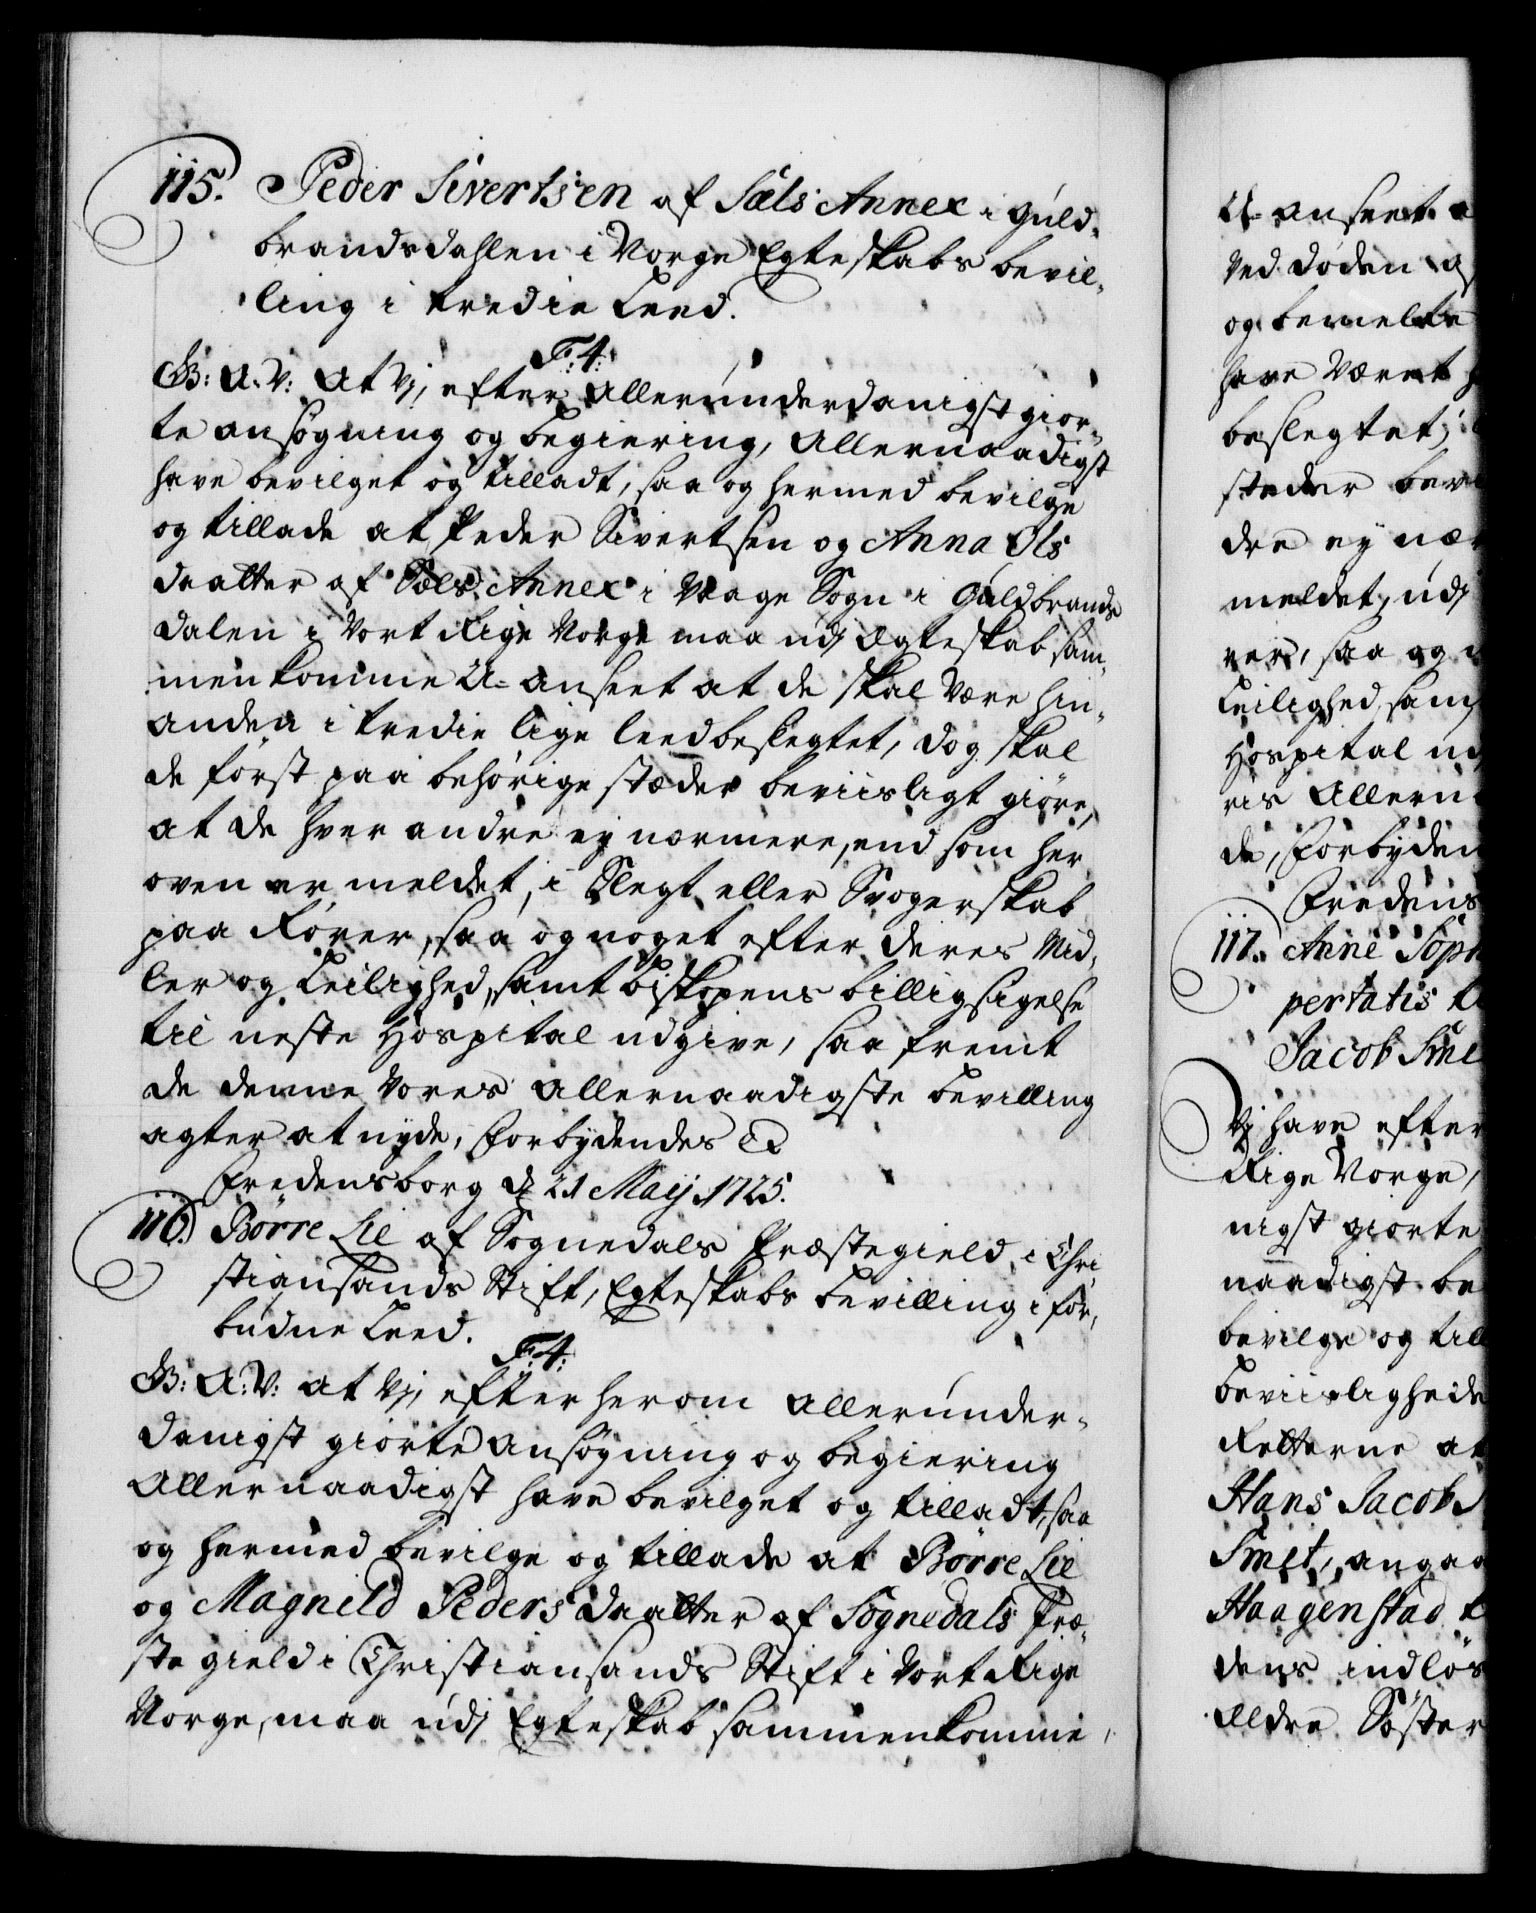 115. Peder Sivertsen af Sæls Annex i Guld-
brandsdahlen i Norge Egteskabs bevil-
ling i tredie Leed.
F: 4:
G: A: V: At Vj, efter Allerunderdanigst gior-
te ansøgning og begiering, Allernaadigst
have bevilget og tilladt, saa og hermed bevilge
og tillade at Peder Sivertsen og Anna Ols
daatter af Sæls Annex i Vaage Sogn i Guldbrands
dalen i Vort Rige Norge maa udj Ægteskab sam-
menkomme U-anseet at de skal være hin-
anden i tredie lige leed beslegtet, dog skal
de først paa behørige stæder beviisligt giøre,
at de hver andre ey nærmere, end som her
oven er meldet, i Slegt eller Svogerskab
paa Rører, saa og noget efter deres Mid-
ler og Leilighed, samt Biskopens billigsigelse
til neste Hospital udgive, saa fremt
de denne Vores Allernaadigste bevilling
agter at nyde, Forbydendes &
Fredensborg d 21 Maij 1725.
116. Børre Lie af Sognedals Præstegield i Chri-
stiansands Stift, Egteskabs bevilling i for-
budne Leed.
F: 4:
G: A: V: at Vj, efter herom allerunder-
danigst giorte ansøgning og begiering
Allernaadigst have bevilget og tilladt, saa
og hermed bevilge og tillade at Børre Lie
og Magnild Peders daatter af Sognedals Præ-
stegield i Christiansands Stift i Vort Rige
Norge, maa udj Egteskab sammenkomme
U-anseet
ved døden
og bemelte
have været
beslegtet,
stæder
dre ey
meldet, udj
rer, saa og
Leilighed,
Hospital
ris
de, Forbyden
Fredens
117. Anne Soph
pertatis
Jacob Sme
Vj have efter
Rige Norge,
nigst giorte
naadigst be
bevilge og till
beviislighede
Retterne at
Hans Jacobs
Smet, angaa
Haagenstad
dens indløs
Ældre Søster